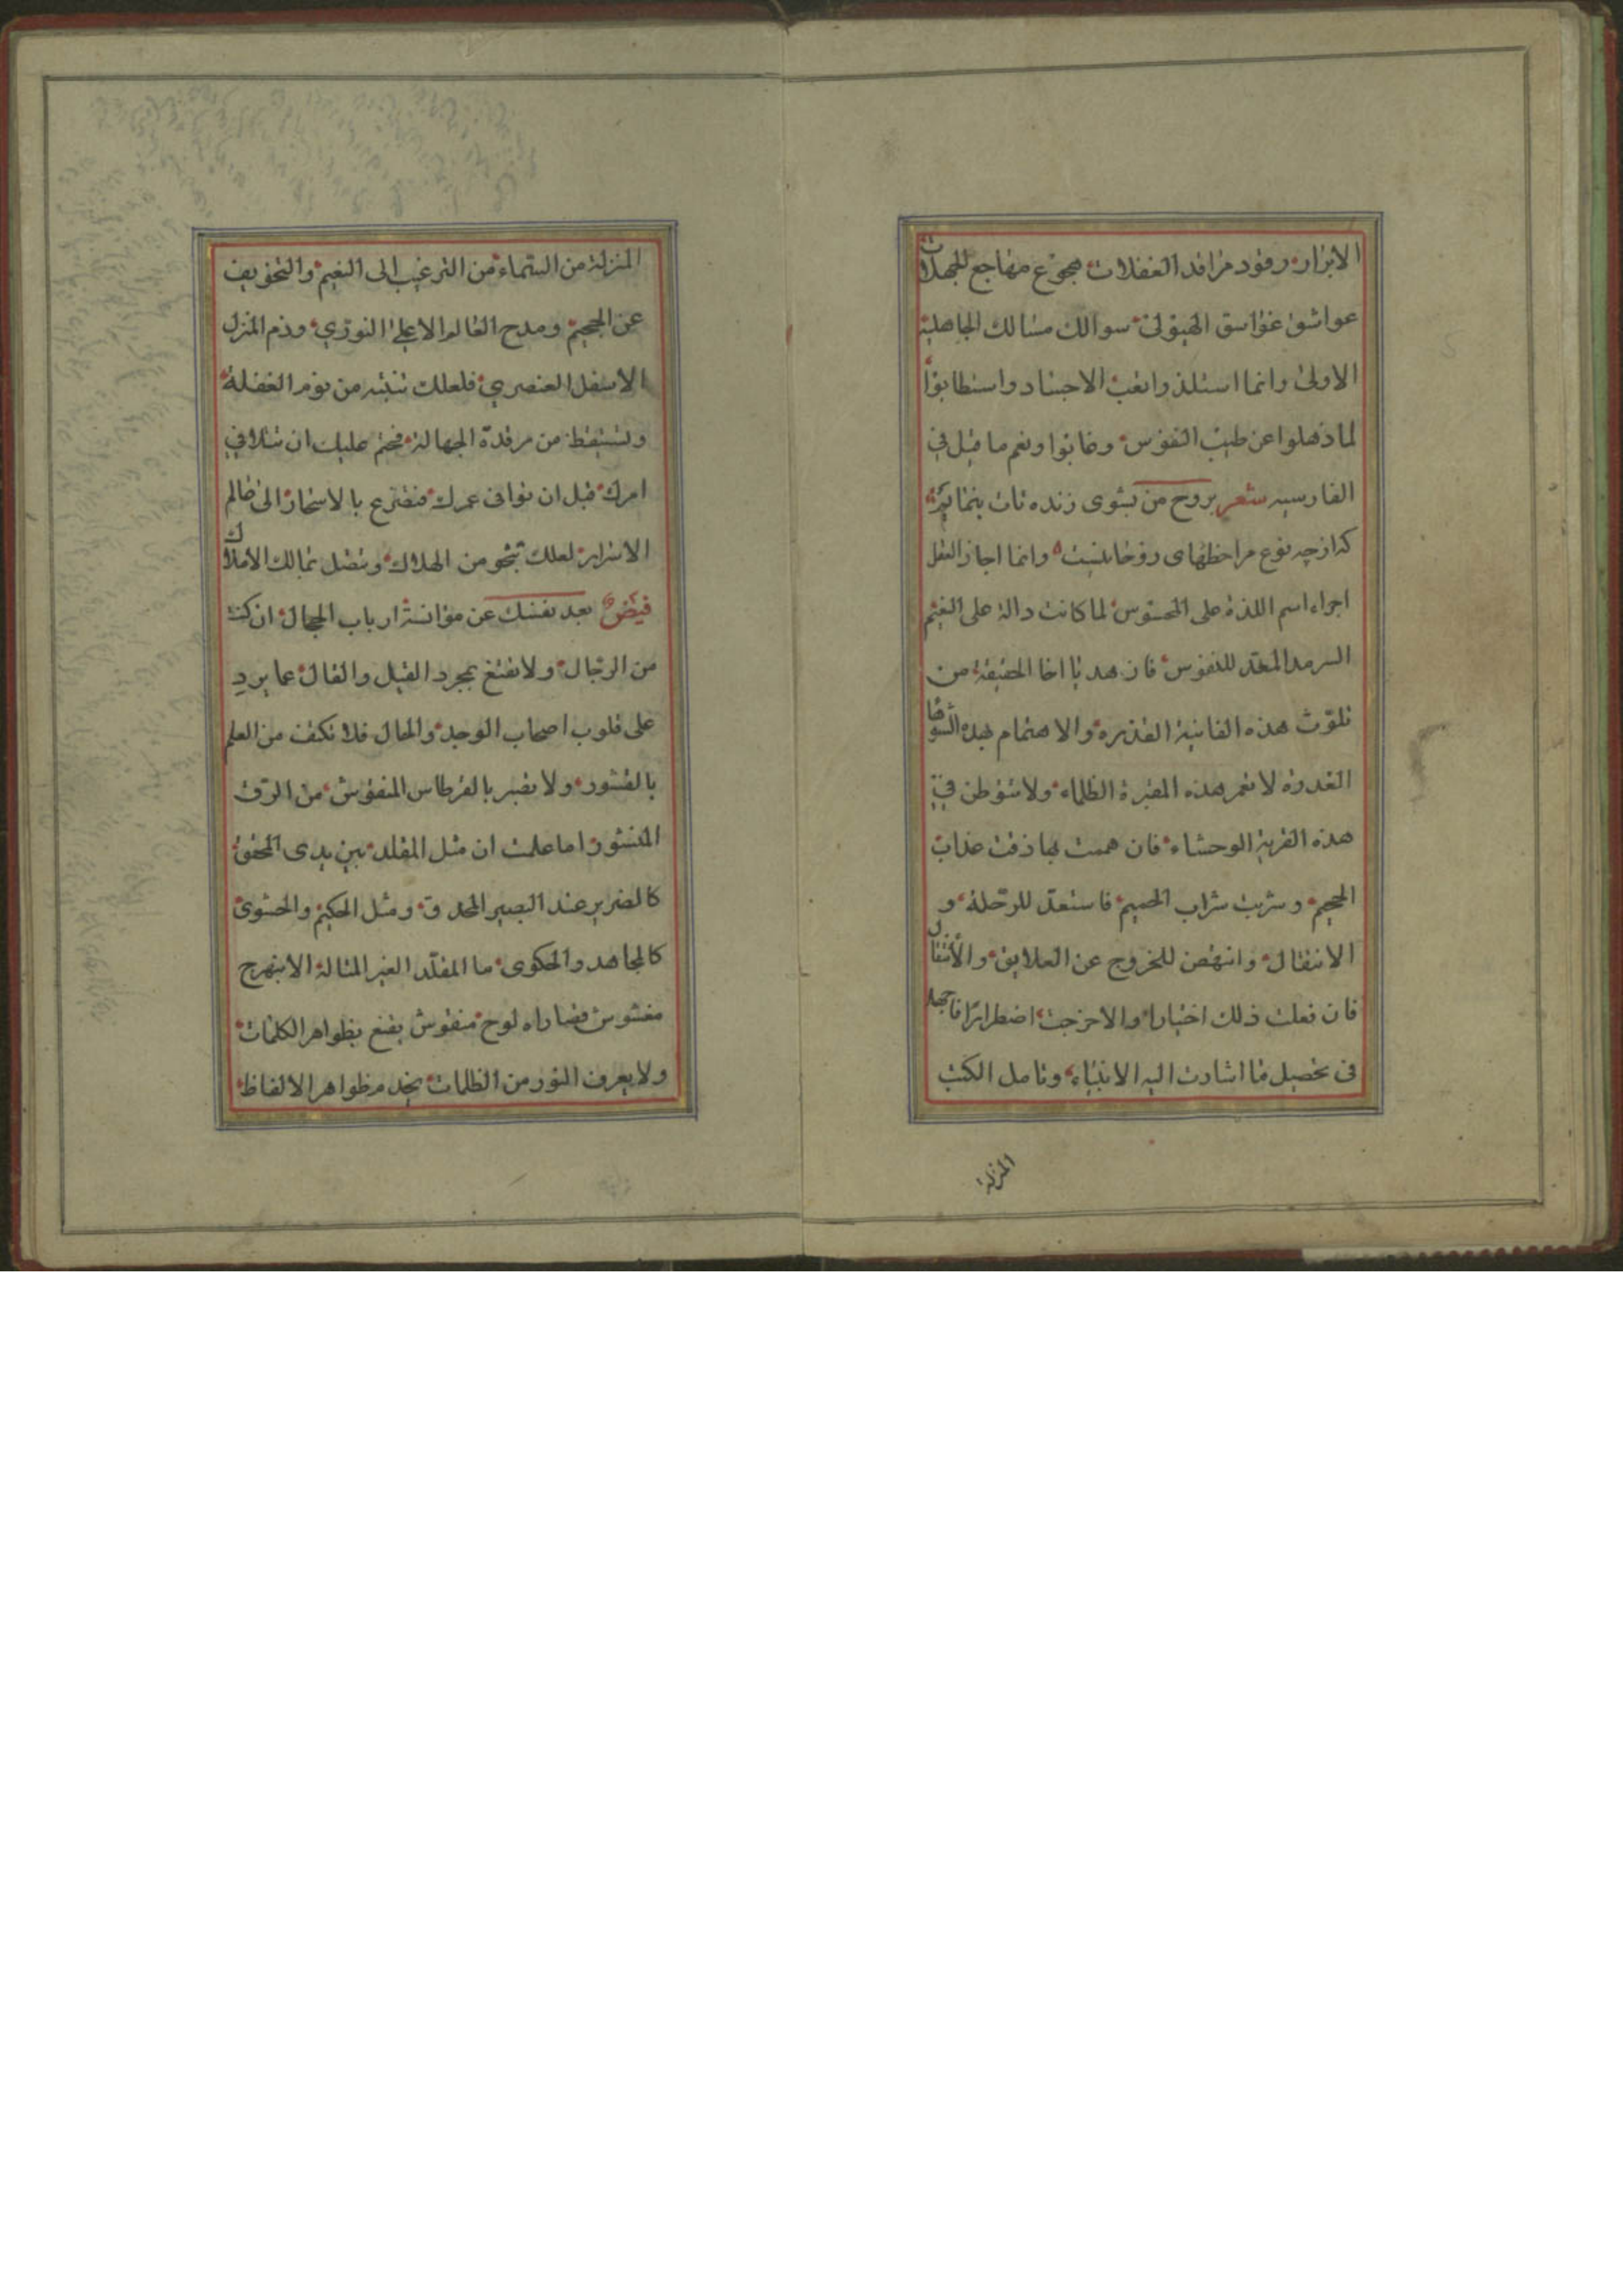 الابرار رقود مراقد الغفلات هجوع مضاجع الجهلات
عواشق غواسق الهيولى سوالك مسالك الجاهلية
الاولى وانما استلذوا نعت الاجساد واستطابوا
لما ذهلوا عن طيب النفوس وخابوا ونعم ما قيل في
الفارسيه شعر بروح من بشوى زنده تات بنمايم
كه از چه نوع مرا حظهاى روحانيست وانما اجاز العقل
اجراء اسم اللذة على المحسوس لما كانت دالة على النعيم
السرمد المعد للنفوس فازهد يا اخا الحقيقة من
تلوث هذه الفانية القذرة والاهتمام بهذه
الغدرة لا تعمر هذه المقبرة الظلماء ولا تتوطن في
هذه القرية الوحشاء فان هممت بها ذقت عذاب
الجحيم وشربت شراب الحميم فاستعد للرحلة و
الانتقال وانتهض للخروج عن العلايق والأثقال
فان فعلت ذلك اختيارا والا خرجت اضطرارا فاجهد
فى تحصيل ما اشارت اليه الانبياء وتامل الكتب
المنزلة
المنزلة من السماء من الترغيب الى النعيم والتخويف
عن الجحيم ومدح العالم الاعلى النورى وذم المنزل
الاسفل العنصري فلعلك تنتبه من نوم الغفلة
وتستيقظ من مرقدة الجهالة فحتم عليك ان تتلافى
امرك قبل ان توافى عمرك فتضرع بالاسحار الى عالم
الاسرار لعلك تنجو من الهلاك وتتصل بمالك الاملاك
فيض بعد نفسك عن موانسة ارباب الحجال ان كنت
من الرجال ولا تقنع بمجرد القيل والقال عما يرد
على قلوب اصحاب الوجد والحال فلا تكتف من العلم
بالقشور ولا تصبر بالقرطاس المنقوش من الرق
المنشور اما علمت ان مثل المقلد بين يدى المحقق
كالضرير عند البصير المحدق ومثل الحكيم والحشوى
كالمجاهد والحكوى ما المقلد الغير المتالة الا بنهرج
مغشوش قصاراه لوح منقوش يقنع بظواهر الكلمات
ولا يعرف النور من الظلمات يخد مظواهر الالفاظ